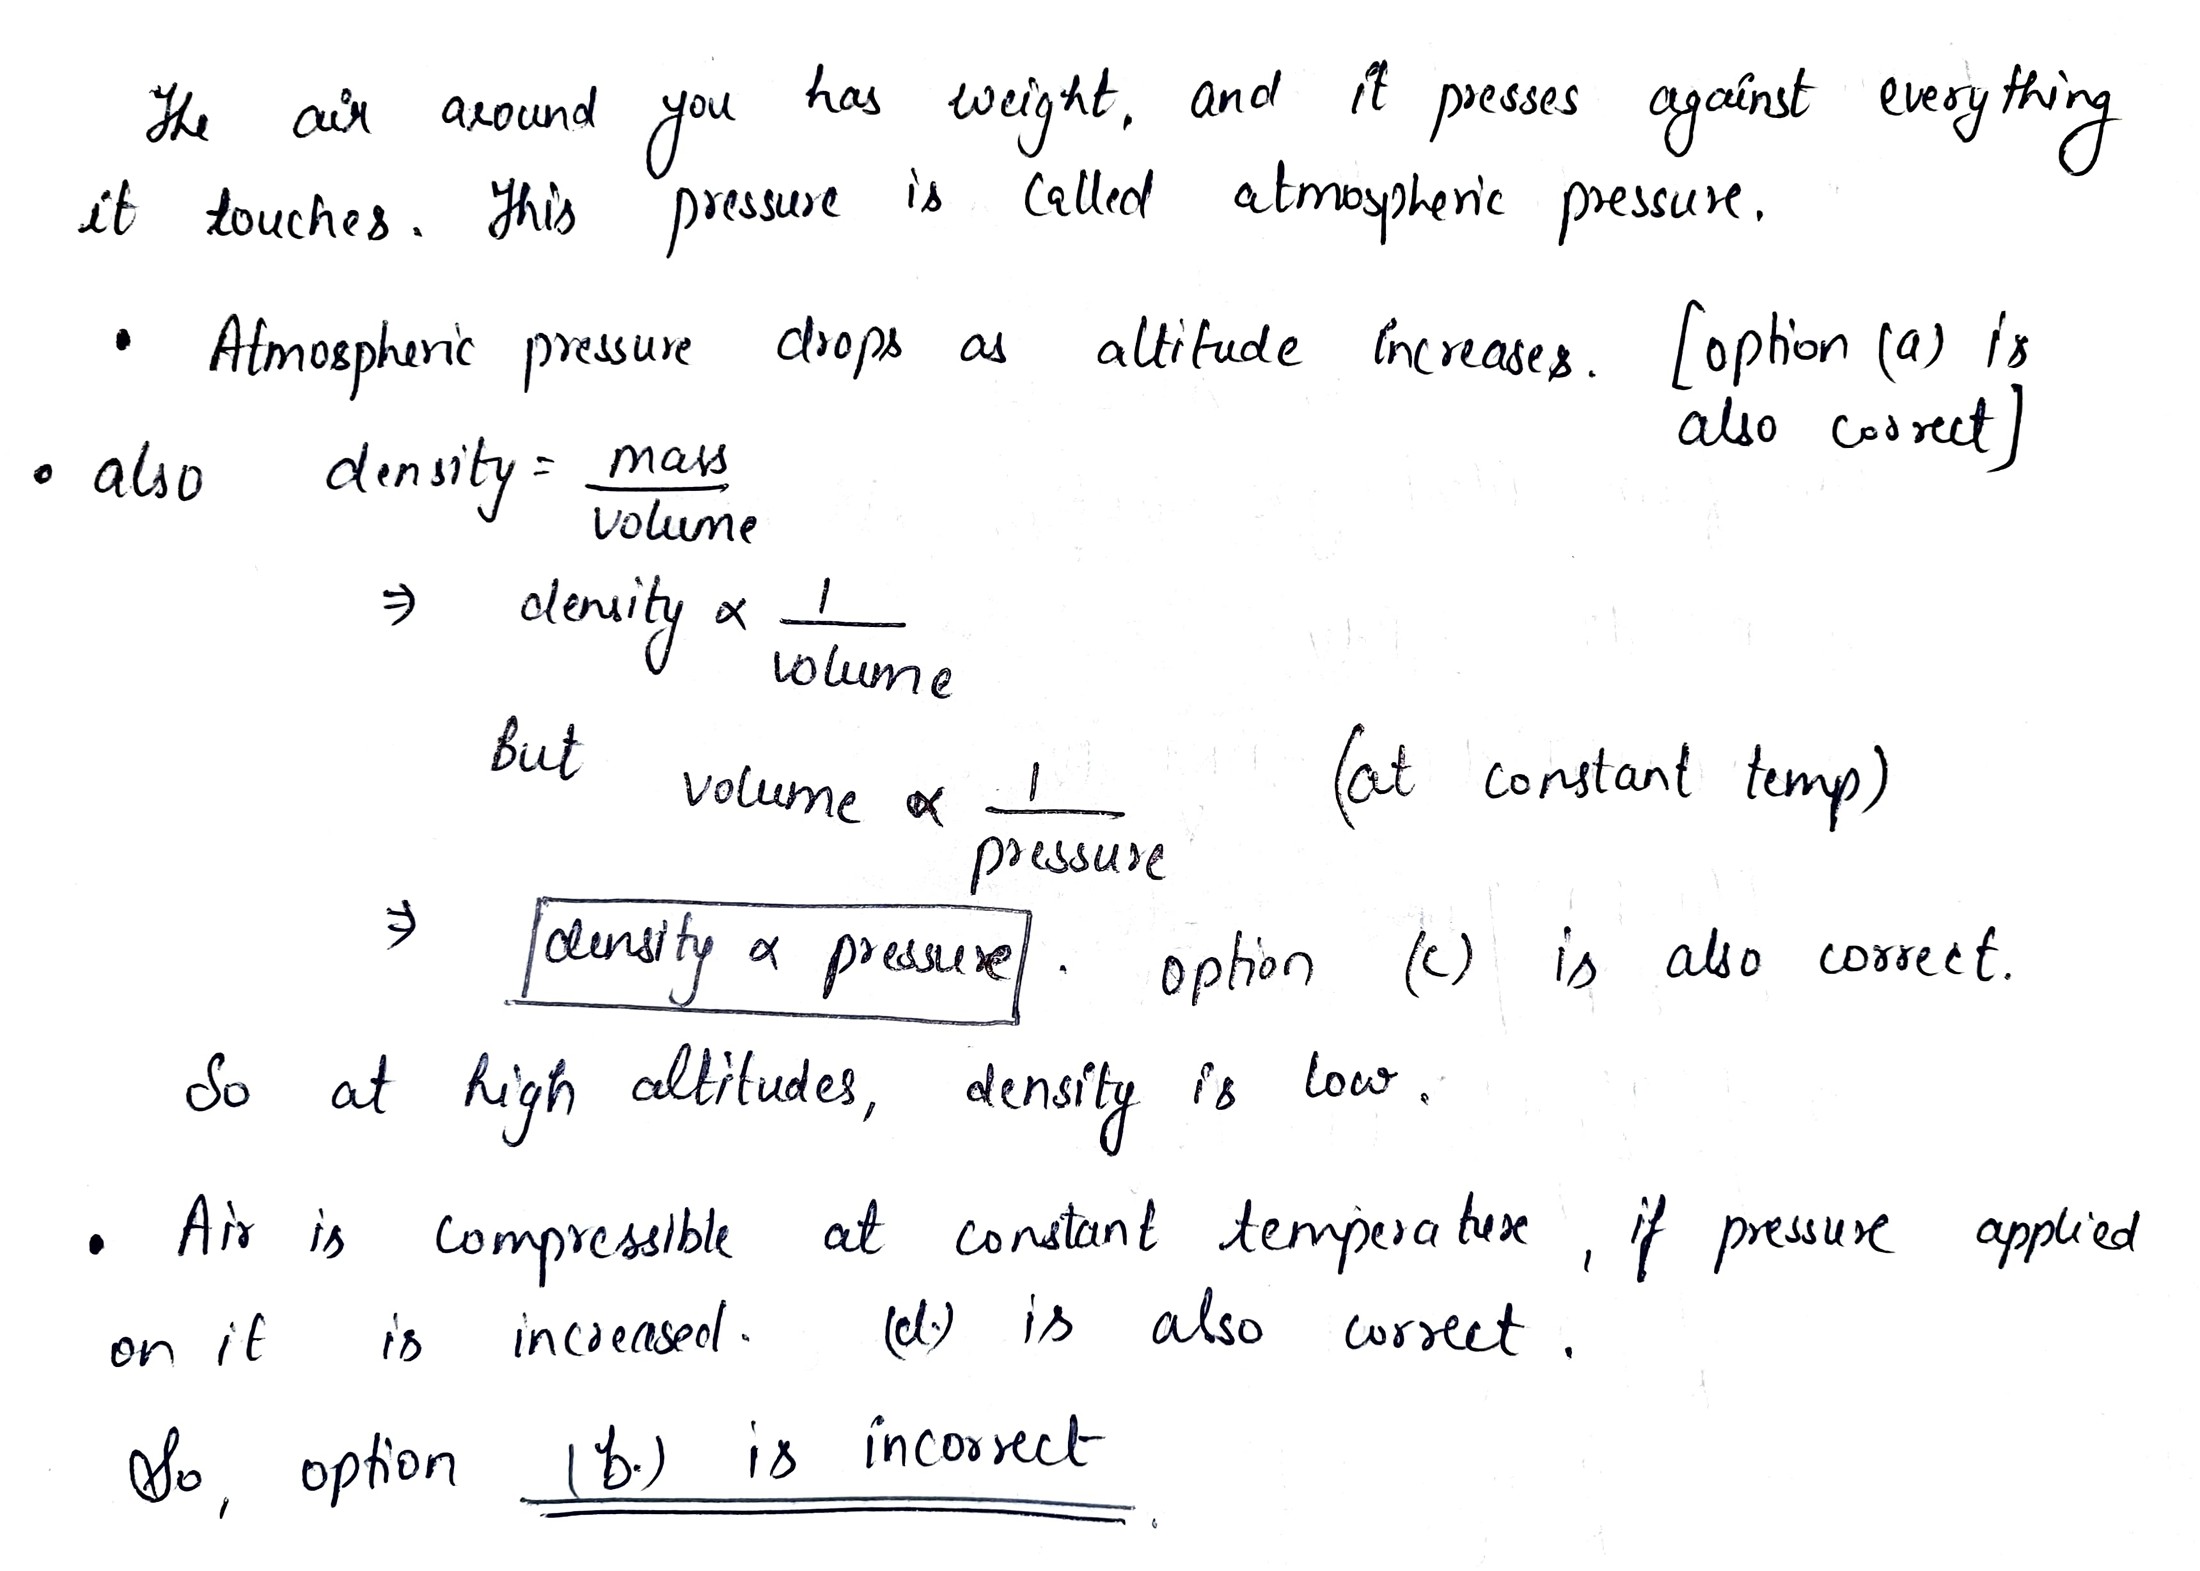 The air around you has weight, and it presses against everything
it touches. This pressure is called atmospheric pressure.
• Atmospheric pressure drops as altitude increases. [option (a) is
also correct]
• also density = mass
volume
⇒ density ∝ 1
volume
But volume ∝ 1 (at constant temp)
pressure
⇒ density ∝ pressure. option (c) is also correct.
So at high altitudes, density is low.
• Air is compressible at constant temperature, if pressure applied
on it is increased. (d.) is also correct.
So, option (b.) is incorrect.